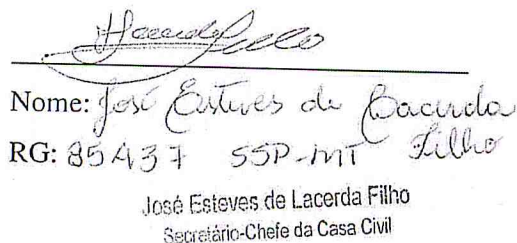 Nome: José Esteves de Lacerda
RG: 85437 SSP-MT Filho
José Esteves de Lacerda Filho
Secretário-Chefe da Casa Civil